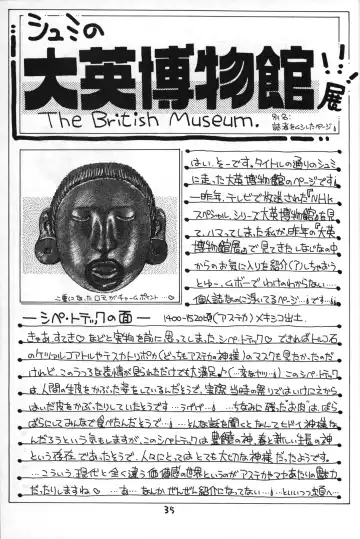 シュミの
大英博物館展!!!
The British Museum.
別名・読者をムシしたページ
はい、そーです。タイトルの通りのシュミ
に走った大英博物館のページです
一昨年、テレビで放送された「NHK
スペシャル、シリーズ大英博物館」を見
て、ハマってしまった私が、昨年の「大英
博物館展」で見てきた
からのお気に入りを紹介(ア)しちゃおう
とゆー、ムボーでわけのわからない…
個人誌なのに浮いてるページ…です…
二重になった口元がチャームポイント…♡
—シペ・トテックの面— 1400-1520頃(アステカ)メキシコ出土.
きゃあ、すてき♡ などと実物を前に思ってしまった、シペ・トテック♡ できればトルコ石
のケツァルコアトルやテスカトリポカ(どっちもアステカの神様)のマスクも見たかったのだ
けれど、このうつろな表情が見られただけでも大満足♪ このシペ・トテック
は、人間の生皮をかぶった姿をしているんだそうで、実際、当時の祭りではいけにえから
はいだ皮をかぶったりしていたそうです… ちなみに残ったお肉は、ばら
ばらにしてみんなで食べたんだそうで…♪ どんな話を聞くとなんてヒドイ神様な
んだろうという気もしますが、このシペ・トテックは農耕の神、春と新しい生長の神
という存在であったそうで、人々にとってはとても大切な神様だったようです。
…こういう、現代と全く違う価値感の世界というのがアステカやマヤあたりの魅力
だったりしますね♡ …なんかぜんぜん紹介になってない…といいつつ次頁へ…
35